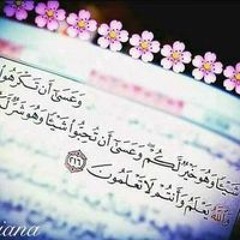 وَعَسَىٰ أَن تَكْرَهُوا
شَيْئًا وَهُوَ خَيْرٌ لَّكُمْ وَعَسَىٰ أَن تُحِبُّوا شَيْئًا وَهُوَ شَرٌّ لَّ
وَاللَّهُ يَعْلَمُ وَأَنتُمْ لَا تَعْلَمُونَ ٢١٦
iana